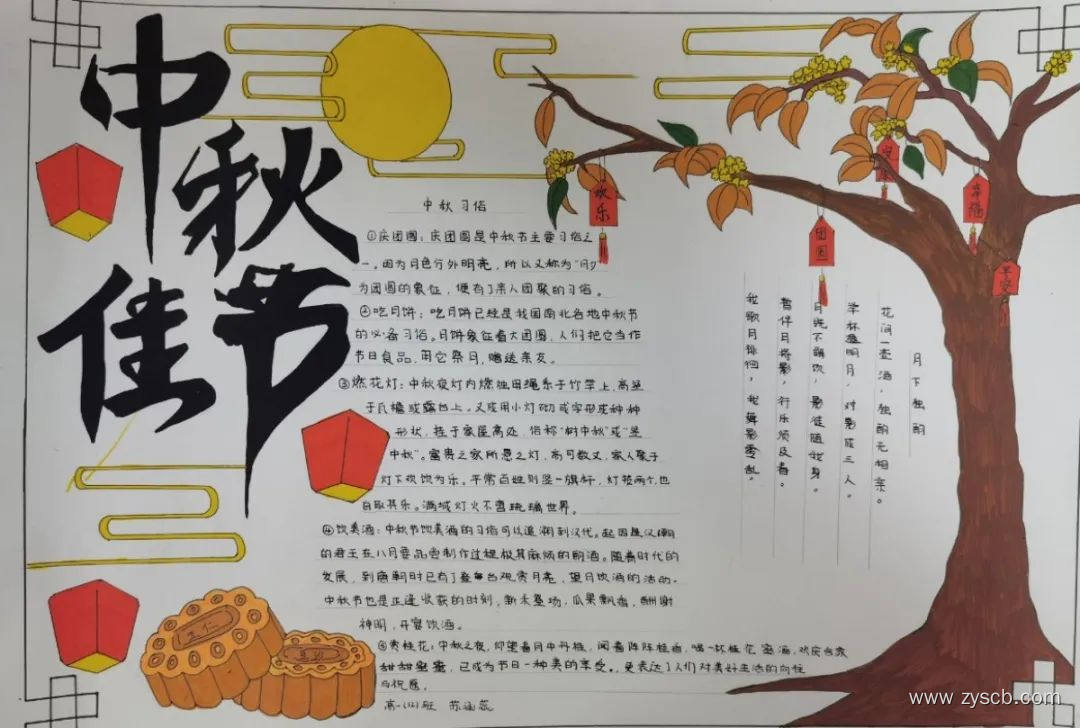 中秋
佳节
中秋习俗
①庆团圆：庆团圆是中秋节主要习俗之
一。因为月色分外明亮，所以又称为“月夕
为团圆的象征，便有了亲人团聚的习俗。
②吃月饼：吃月饼已经是我国南北各地中秋节
的必备习俗。月饼象征着大团圆，人们把它当作
节日食品，用它祭月，赠送亲友。
③燃花灯：中秋夜灯内燃烛用绳系于竹竿上，高竖
于瓦檐或露台上。又或用小灯砌成字形或种种
形状，挂于家屋高处，俗称“树中秋”或“竖
中秋”。富贵之家所悬之灯，高可数丈，家人聚于
灯下欢饮为乐。平常百姓则竖一旗杆，灯笼两个，也
自取其乐。满城灯火不啻琉璃世界。
④饮美酒：中秋节饮美酒的习俗可以追溯到汉代。起因是汉朝
的君王在八月要品尝制作过程极其麻烦的酎酒。随着时代的
发展，到唐朝时已有了登台观赏月亮，望月饮酒的活动。
中秋节也是正逢收获的时刻，新禾登场，瓜果飘香，酬谢
神明，开宴饮酒。
⑤赏桂花：中秋之夜，仰望着月中丹桂，闻着阵阵桂香，喝一杯桂花蜜酒，欢庆合家
甜甜蜜蜜，已成为节日一种美的享受。更表达了人们对美好生活的向往
与祝愿。
高一(12)班 苏涵蕊
欢乐
团圆
幸福
平安
月下独酌
花间一壶酒，独酌无相亲。
举杯邀明月，对影成三人。
月既不解饮，影徒随我身。
暂伴月将影，行乐须及春。
我歌月徘徊，我舞影零乱。
五仁
www.zyscb.com